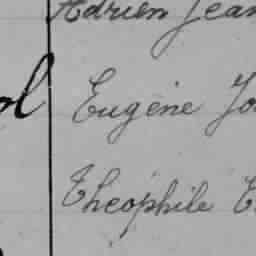 Adrien Jean
Eugène
Théophile